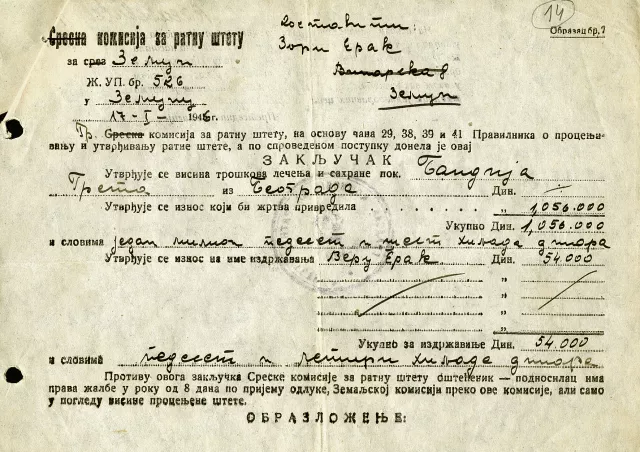 14
Образац бр. 7
Доставити:
Зори Ерак
Земун
Сресна комисија за ратну штету
за срез Земун
Ж. УП. бр. 526
у Земуну
17-I- 1946г.
Гр. Сресна комисија за ратну штету, на основу чана 29, 38, 39 и 41 Правилника о процењи-
вању и утврђивању ратне штете, а по спроведеном поступку донела је овај
ЗАКЉУЧАК
Утврђује се висина трошкова лечења и сахране пок. Бандија
Грета из Београда Дин. —
Утврђује се износ који би жртва привредила . . . . . . . . „ 1,056.000
Укупно Дин. 1,056.000
и словима један милион педесет и шест хиљада динара
Утврђује се износ на име издржавања Веру Ерак Дин. 54.000
„ „
„ „
„ „
„ „
Укупно за издржавање Дин. 54.000
и словима педесет и четири хиљаде динара
Противу овога закључка Среске комисије за ратну штету оштећеник — подносилац има
права жалбе у року од 8 дана по пријему одлуке, Земаљској комисији преко ове комисије, али само
у погледу висине процењене штете.
ОБРАЗЛОЖЕЊЕ: